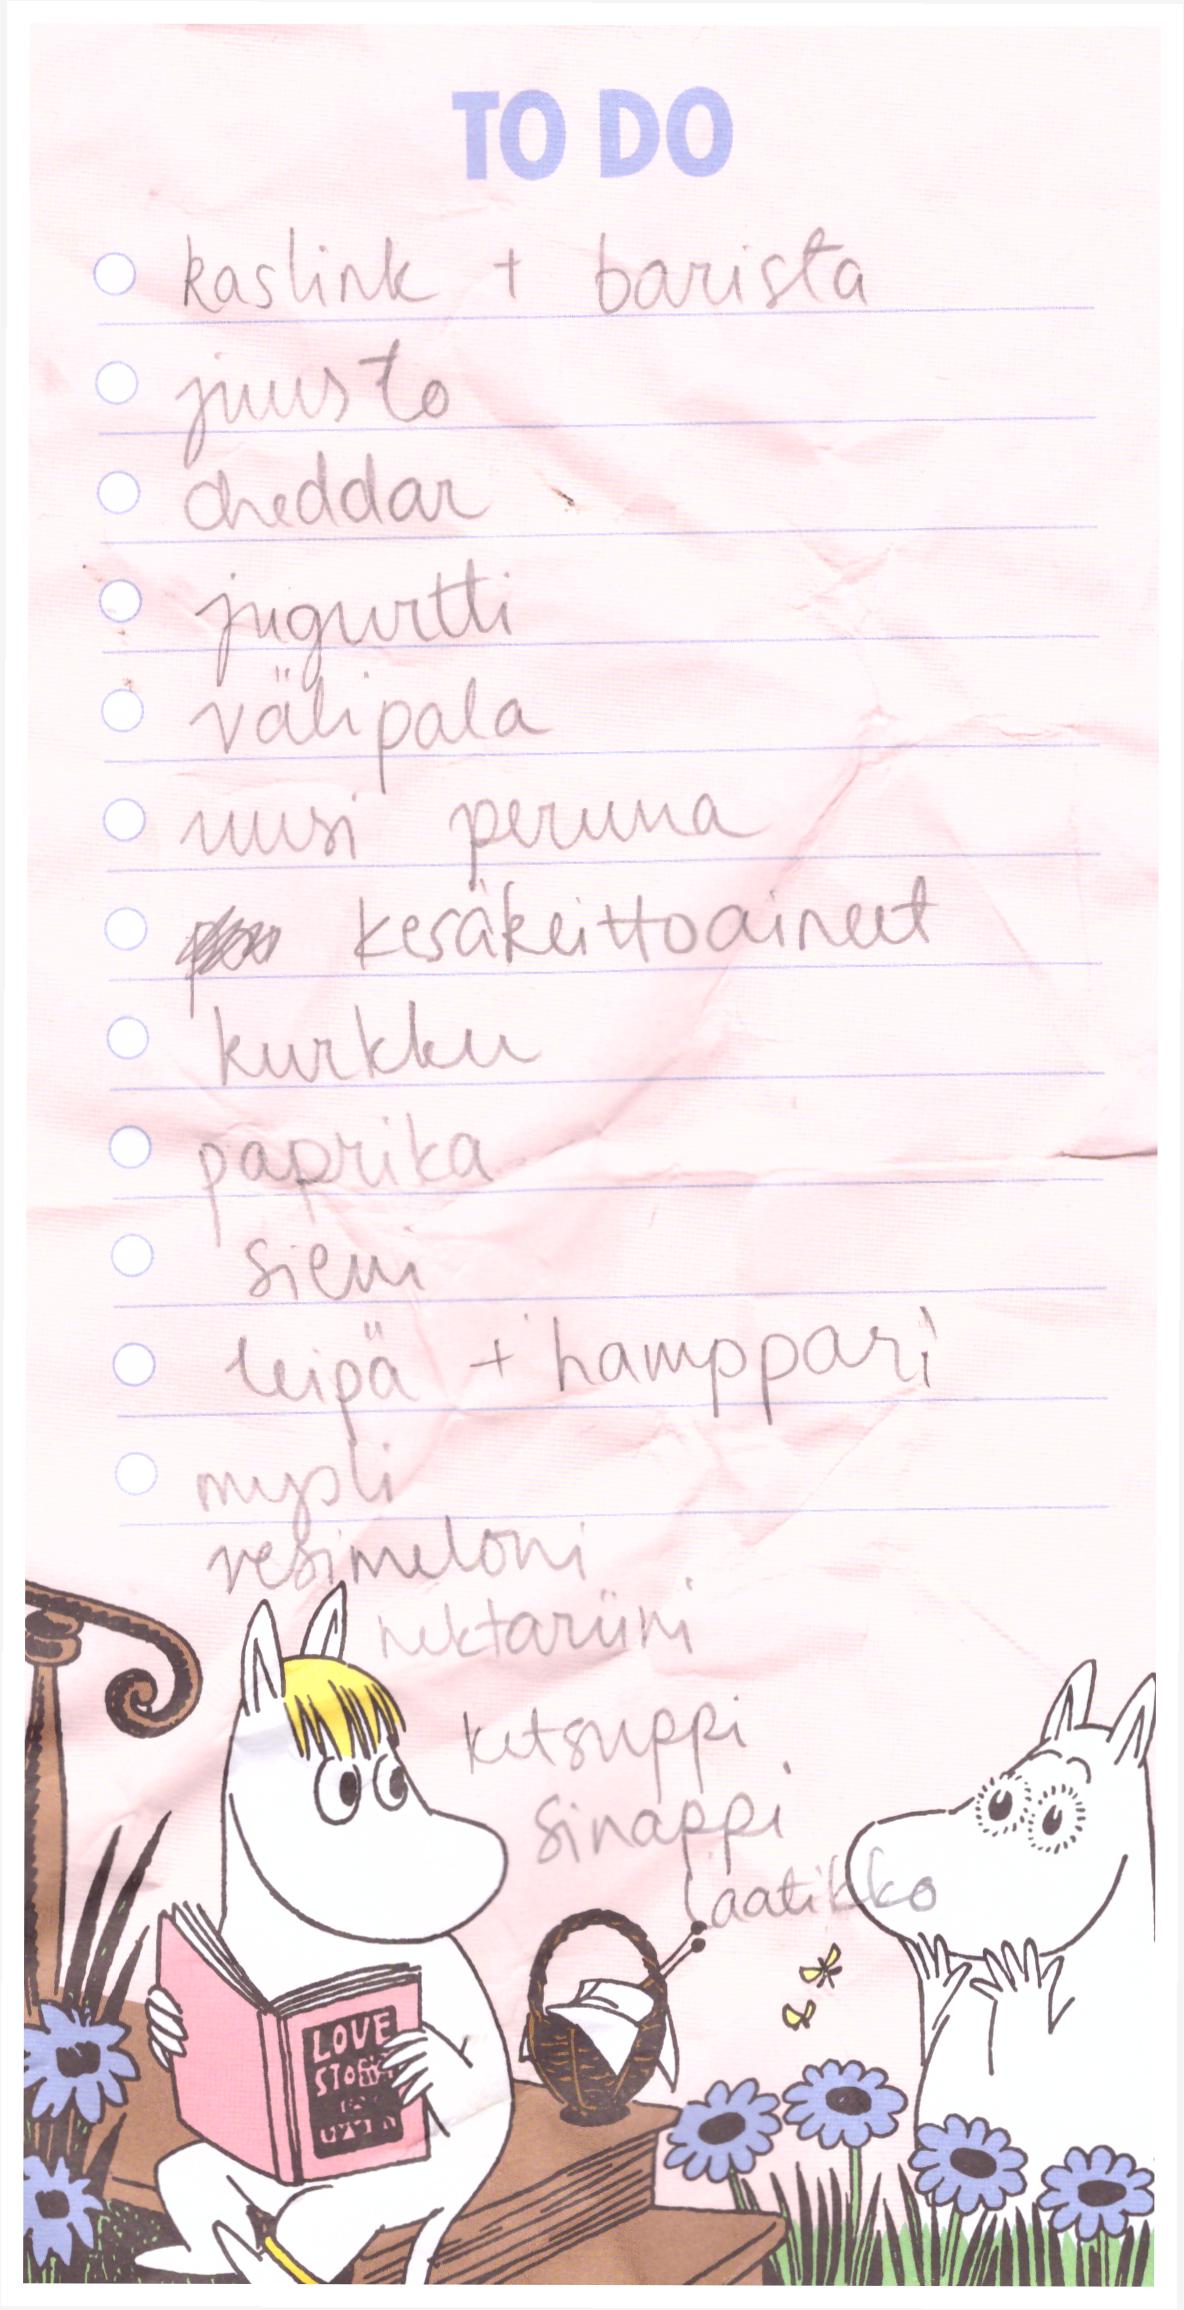 TO DO
kaslink + barista
juusto
cheddar
jugurtti
välipala
uusi peruna
kesäkeittoaineet
kurkku
paprika
sieni
leipä + hamppari
mysli
vesimeloni
nektariini
ketsuppi
sinappi
laatikko
LOVE